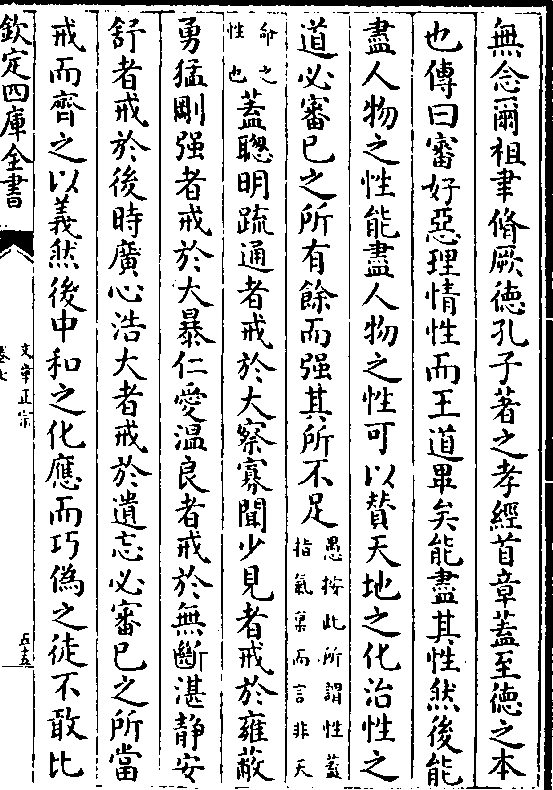 無念爾祖聿脩厥徳孔子著之孝經首章蓋至徳之本
也傳曰審好惡理情性而王道畢矣能盡其性然後能
盡人物之性能盡人物之性可以賛天地之化治性之
道必審已之所有餘而强其所不足愚按此所謂性蓋指氣稟而言非天
命之性也蓋聰明疏通者戒於大察寡聞少見者戒於雍蔽
勇猛剛强者戒於大暴仁愛温良者戒於無斷湛静安
舒者戒於後時廣心浩大者戒於遺忘必審已之所當
戒而齊之以義然後中和之化應而巧偽之徒不敢比
欽定四庫全書
文章正宗
卷七
五十五